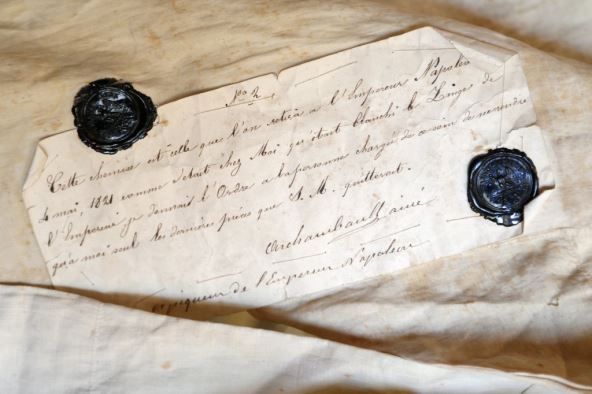 No 2
Cette chemise est celle que l'on retira a l'Empereur Napoléo
4 mai, 1821 comme s'etait chez Moi qu'était blanchi le Linge de
l'Empereur je donnait l'Ordre a la personne chargé de ce soin de ne rendre
qu'a moi seul les dernières pièces que S. M. quitterait.
Archambault ainé
1er piqueur de l'Empereur Napoleon